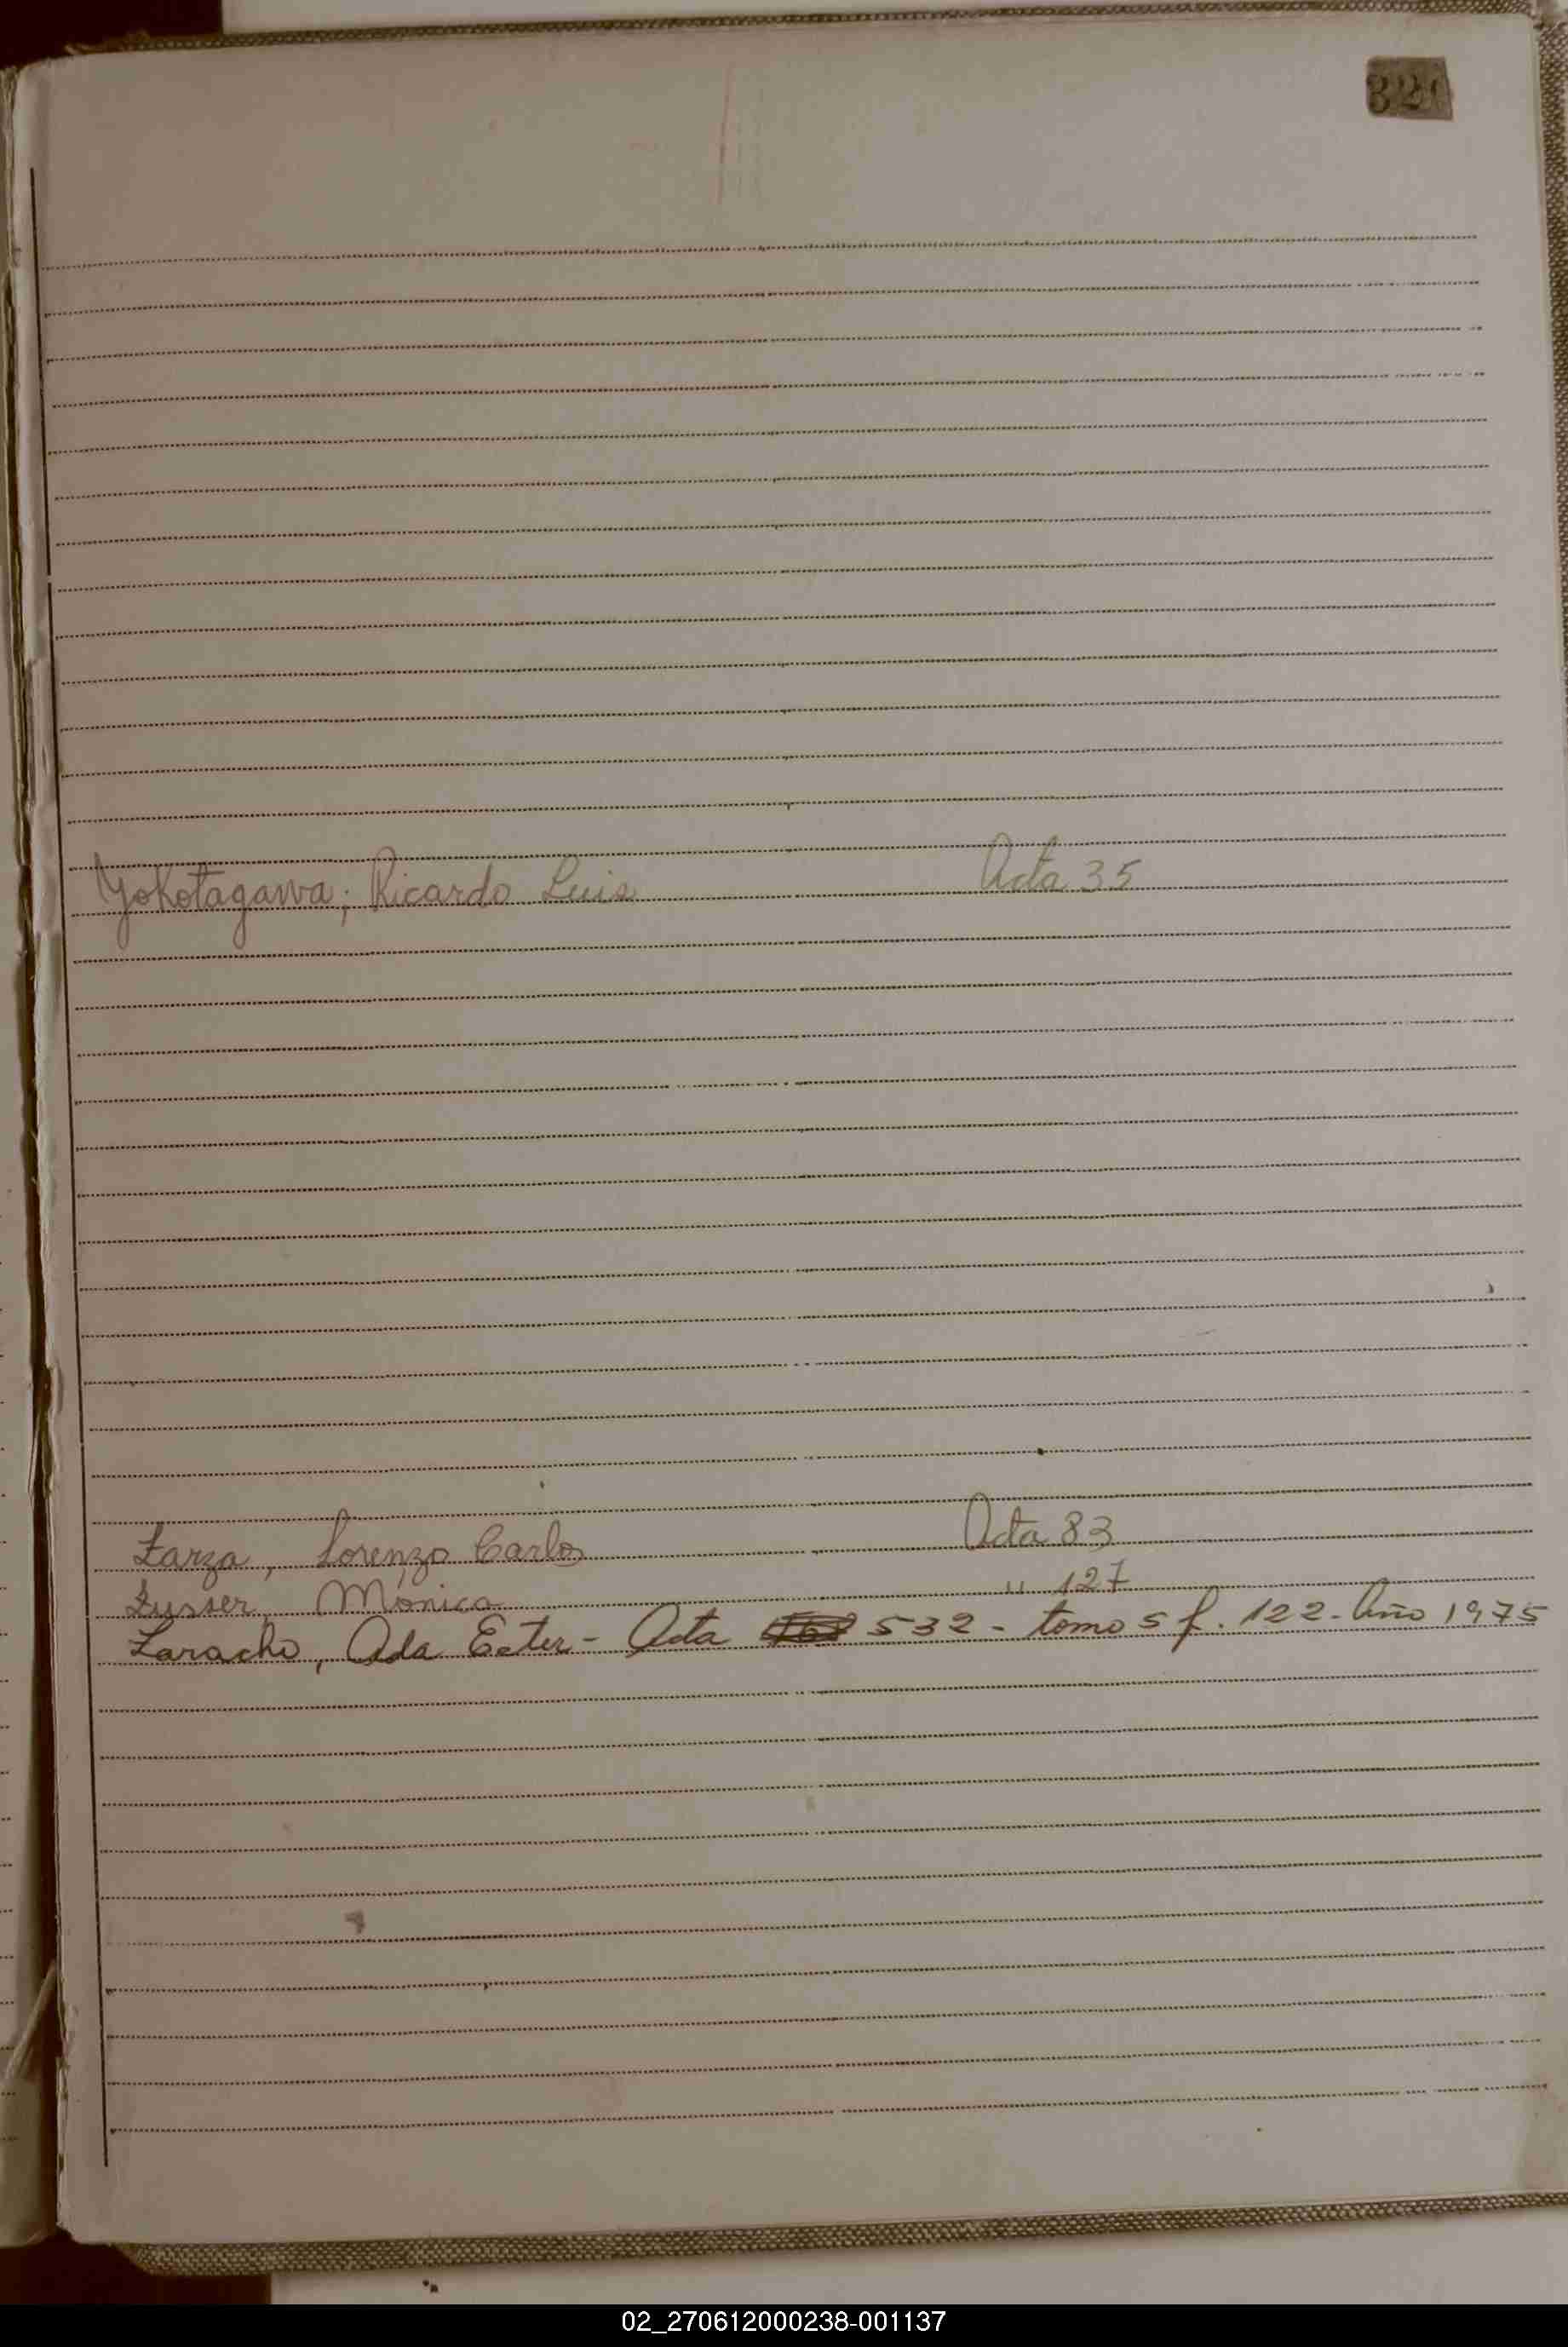 321
Yokotagawa; Ricardo Luis Acta 35
Zarza, Lorenzo Carlos Acta 83
Zusser, Mónica " 127
Laracho, Ada Ester - Acta 532 - tomo 5 f. 122 - Año 1975
02_270612000238-001137